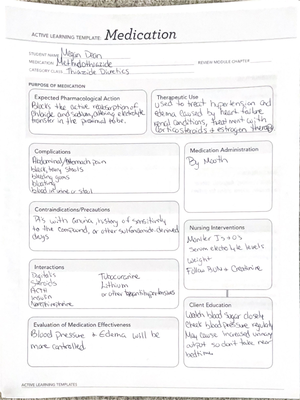 ACTIVE LEARNING TEMPLATE: Medication
STUDENT NAME Dean
MEDICATION
REVIEW MODULE CHAPTER
CATEGORY CLASS Thiazide Diuretics
PURPOSE OF MEDICATION
Expected Pharmacological Action
Blocks the active reabsorption of
chloride and sodium, altering electrolyte
transfer in the proximal tube.
Therapeutic Use
used to treat hypertension and
edema caused by heart failure,
renal conditions, treat with
corticosteroids + estrogen therapy
Complications
Abdominal/stomach pain
black, tarry stools
bleeding gums
bloating
blood in urine or stool
Medication Administration
By Mouth
Contraindications/Precautions
Pts with anuria, history of sensitivity
to the compound, or other sulfonamide-derived
drugs
Nursing Interventions
Monitor I's + O's
serum electrolyte levels
weight
Follow BUN + Creatinine
Interactions
Digitalis
Steroids
ACTH
insulin
norepinephrine
Tubocurarine
Lithium
or other antihypertensives
Client Education
Watch blood sugar closely
Check blood pressure regularly
May cause increased urinary
output so don't take near
bedtime
Evaluation of Medication Effectiveness
Blood pressure + Edema will be
more controlled.
ACTIVE LEARNING TEMPLATES